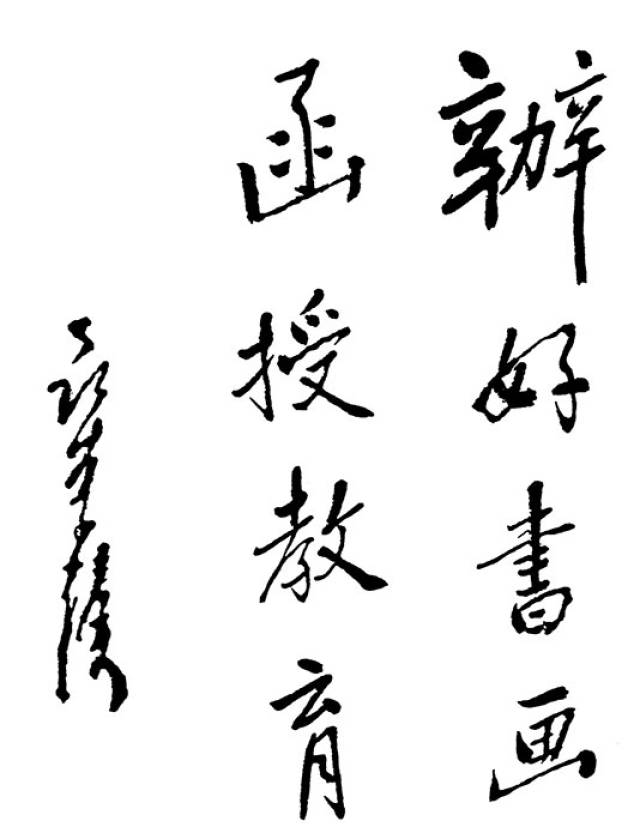 辦好書画
函授教育